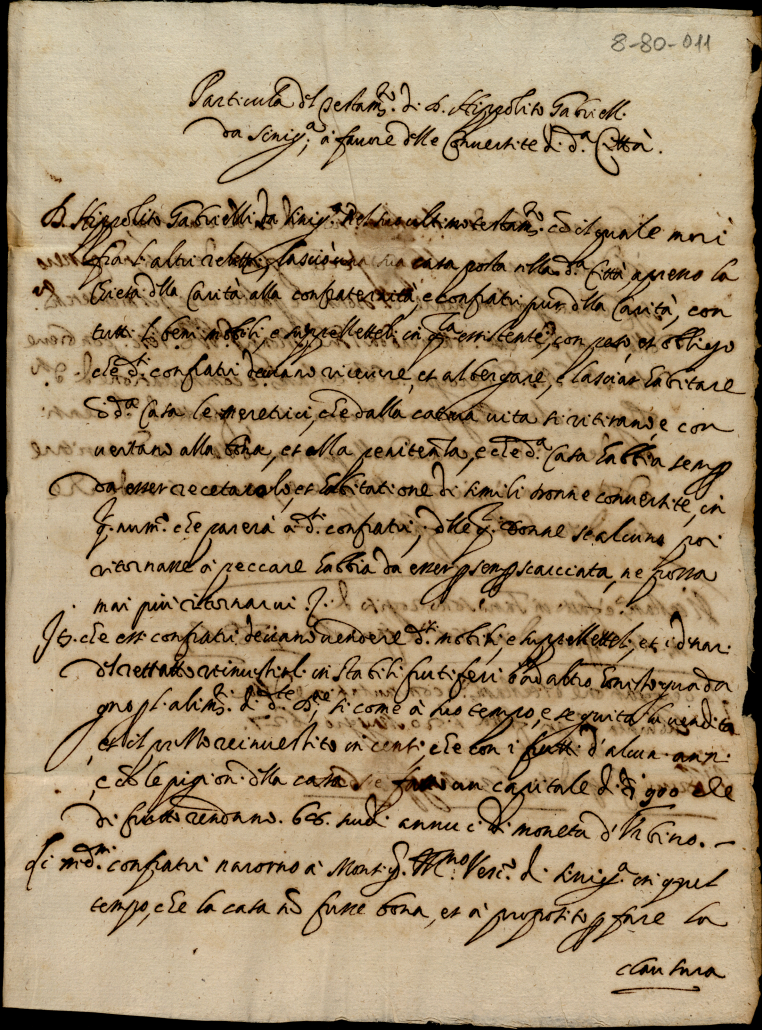 8-80-011
Particula del testam.to di D. Hippolito Gabriell.
da Sinig.a, à favore delle Convertite di d.a Città.
D. Hippolito Gabrielli da Sinig.a nel suo ultimo testam.to cō il quale morì
frà li altri relitti, lasciò una sua casa posta nella d.a Città, apresso la
Chiesa della Carità alla confraternità, e confratri pur della Carità, con
tutti li beni mobili, e suppellettoli in q.lla essistente, con peso, et obbligo
che d.ti confratri devano ricevere, et albergare, e lasciar habitare
d.a Casa le meretrici, che dalla cattiva vita si ritirano e con
vertano alla bona, et alla penitenza, e che d.a Casa habbia semp
da esser recetacolo, et habitatione di simili donne convertite, in
q. num.o che parerà à d.ti confratri, delle q.li Donne se alcuna poi
ritornasse à peccare habbia da esser p semp scacciata, ne possa
mai più ritornarvi.
It. che essi confratri devano vendere d.ti mobili, e suppellettoli, et i denari
del retratto rinvestirli in stabili fruttiferi ò ad altro honesto guada
gno p li alim.ti di d.te D.ne, si come à suo tempo, e seguita la vendita
et il prezzo reinvestito in censi che con i frutti d'alcun anni
e cō le pigion della casa fà un capitale di 900 che
di frutto rendano. scudi annui di moneta d'Urbino. —
Li m.d.mi confratri narorno à Mons.r Ill.mo Vesc.o di Sinig.a in quel
tempo, che la casa nō fusse bona, et à proposito p fare la
clausura